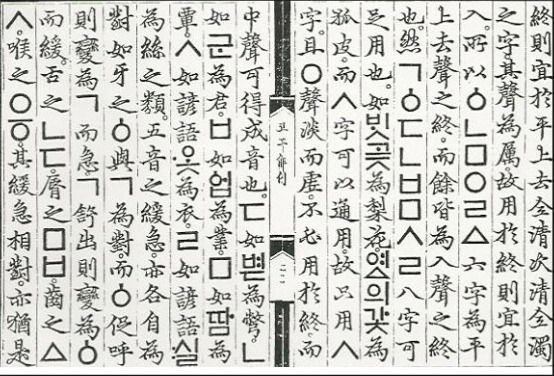 終則宜於平上去全清次清全濁
之字其聲為厲故用於終則宜於
入所以ㆁㄴㅁㅇㄹㅿ六字為平
上去聲之終而餘皆為入聲之終
也然ㄱㆁㄷㄴㅂㅁㅅㄹ八字可
足用也如ᄇᆡᆺ곶為梨花여ᇫ의갗為
狐皮而ㅅ字可以通用故只用ㅅ
字且ㅇ聲淡而虛不必用於終而
中聲可得成音也ㄷ如볃為彆ㄴ
如군為君ㅂ如ᅌᅥᆸ為業ㅁ如땀為
覃ㅅ如諺語옷為衣ㄹ如諺語실
為絲之類五音之緩急亦各自為
對如牙之ㆁ與ㄱ為對而ㆁ促呼
則變為ㄱ而急ㄱ舒出則變為ㆁ
而緩舌之ㄴㄷ脣之ㅁㅂ齒之ㅿ
ㅅ喉之ㅇㆆ其緩急相對亦猶是